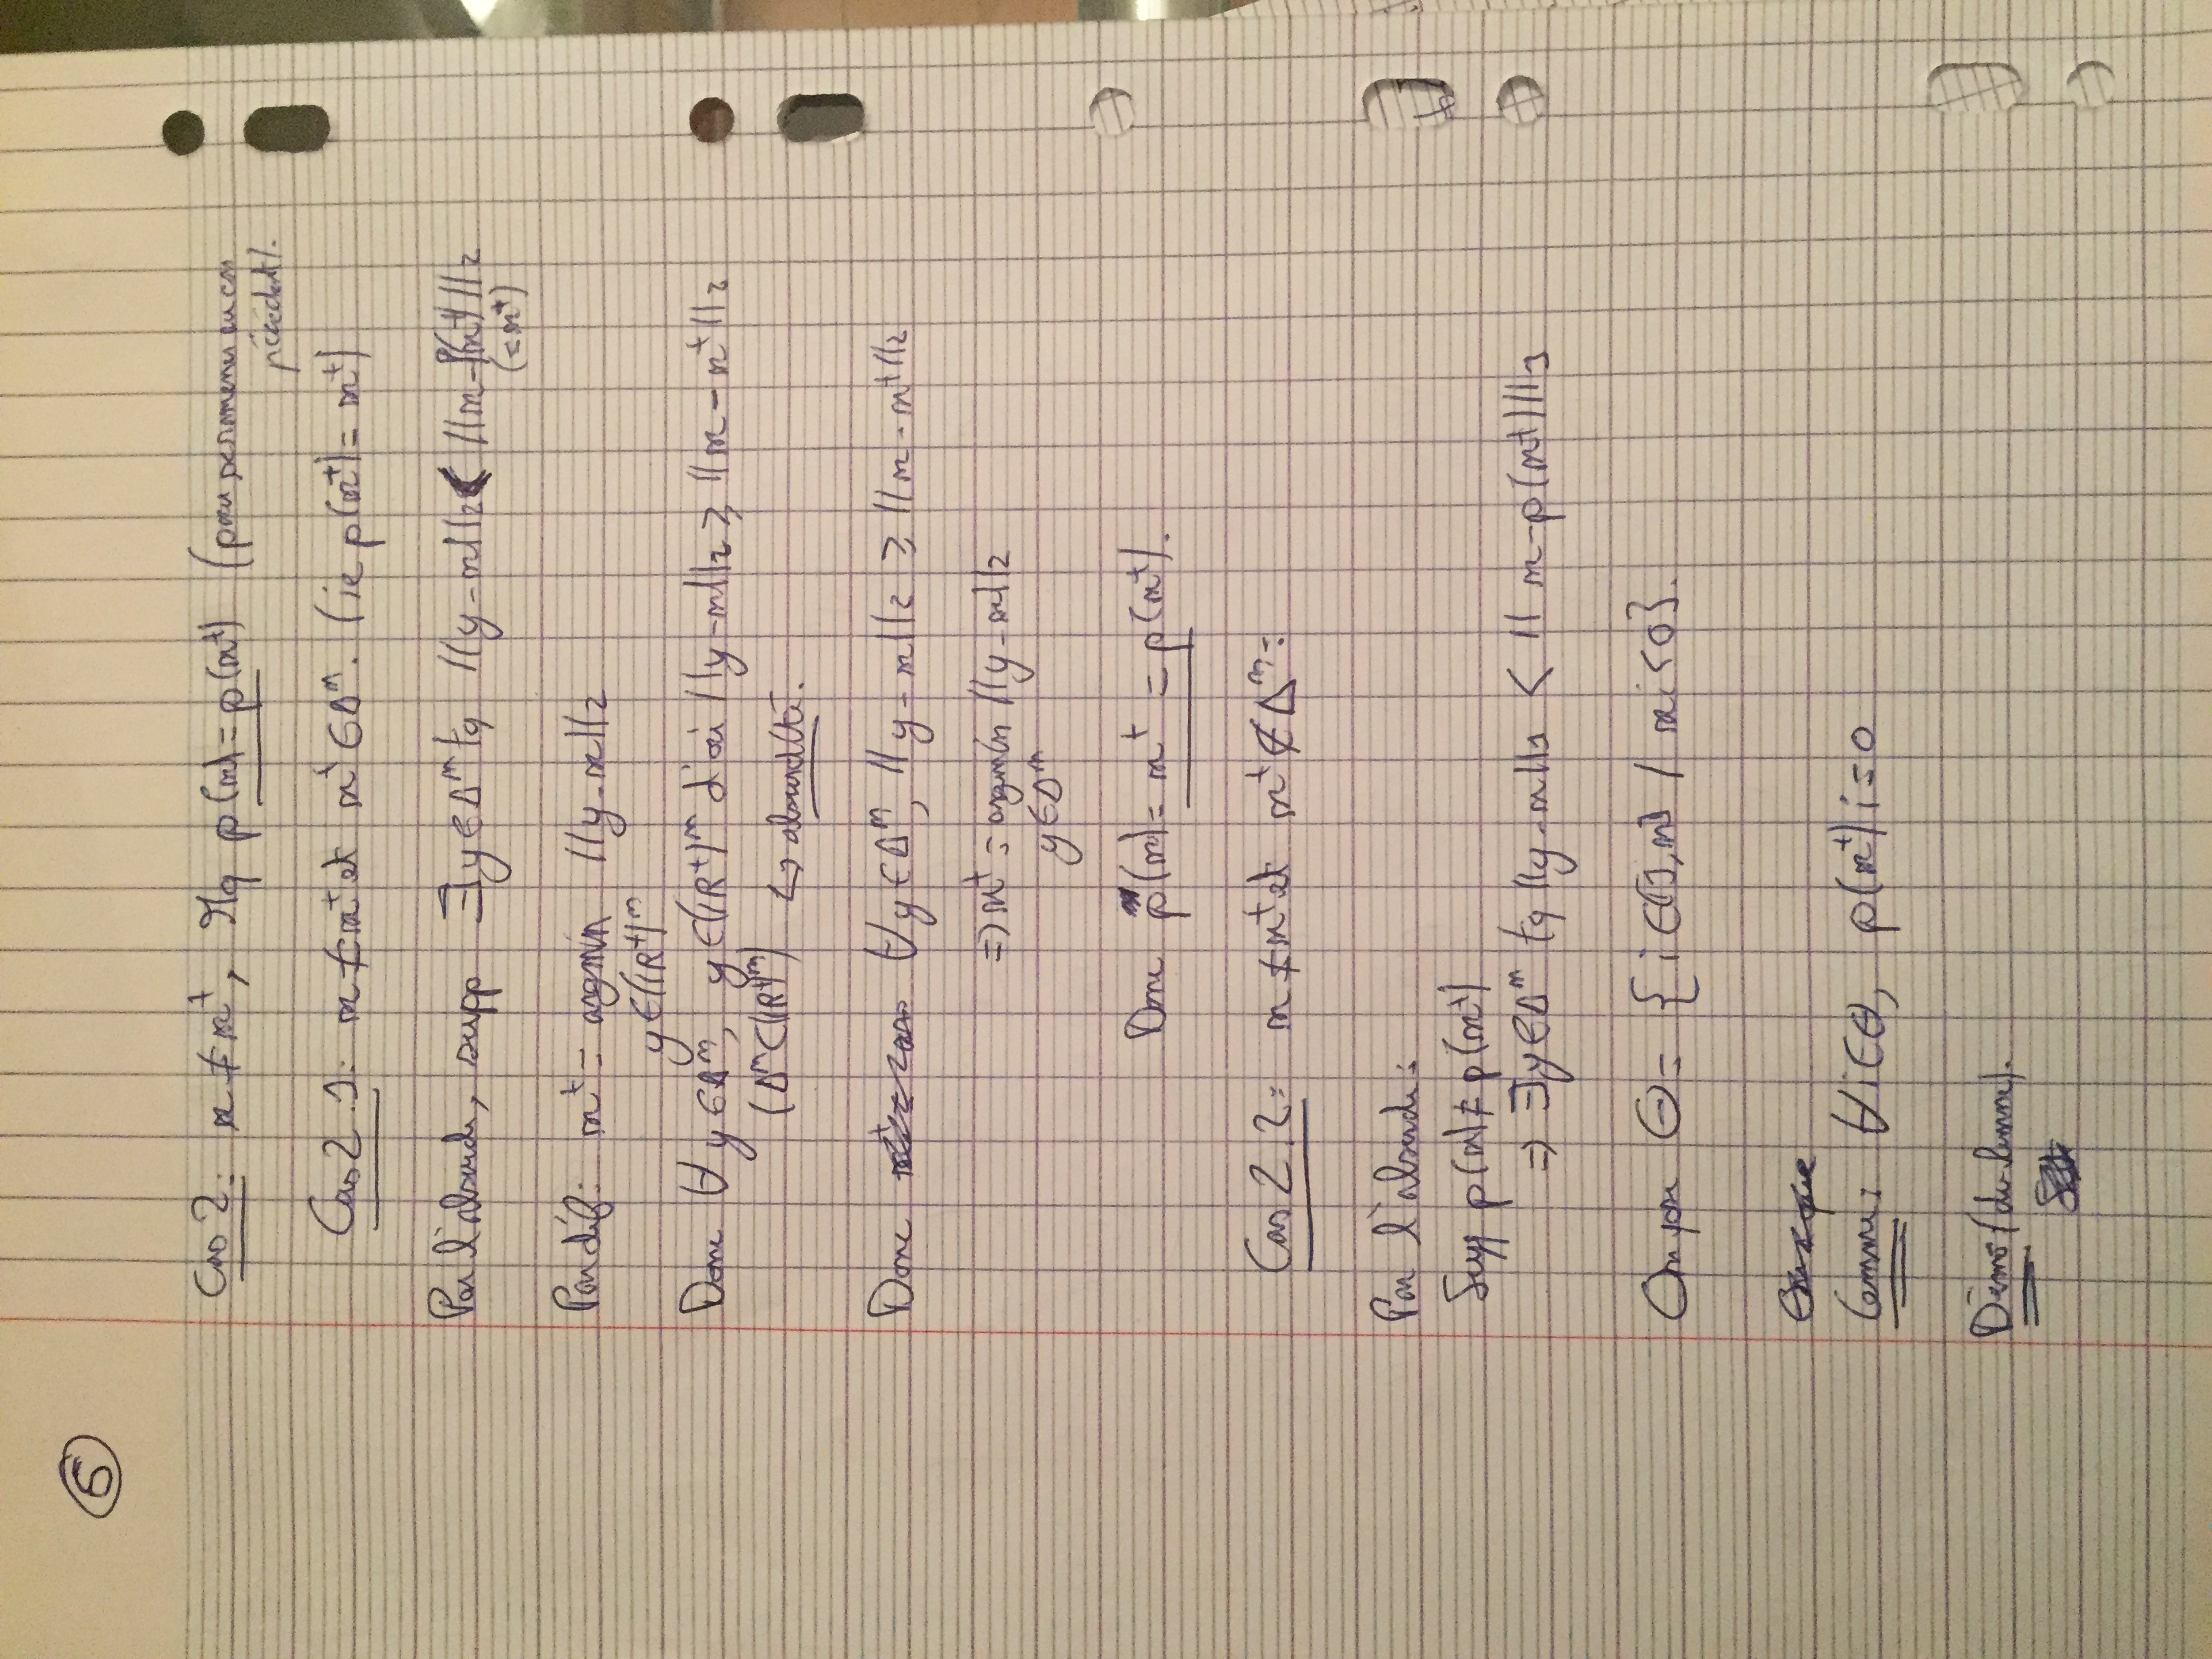 6
Cas 2: x ≠ x⁺, Mq p(x) = p(x⁺) (pour se ramener au cas
précédent).
Cas 2.1: x ≠ x⁺ et x⁺ ∈ Δⁿ. (ie p(x⁺) = x⁺)
Par l'absurde, supp ∃y ∈ Δⁿ tq ||y-x||₂ < ||x-p(x⁺)||₂
(= x⁺)
Par déf: x⁺ = argmin ||y-x||₂
y ∈ (ℝ⁺)ⁿ
Donc ∀y ∈ Δⁿ, y ∈ (ℝ⁺)ⁿ d'où ||y-x||₂ ≥ ||x-x⁺||₂
(Δⁿ ⊂ (ℝ⁺)ⁿ) ↳ absurdité.
Donc ∀y ∈ Δⁿ, ||y-x||₂ ≥ ||x-x⁺||₂
⇒ x⁺ = argmin ||y-x||₂
y ∈ Δⁿ
Donc p(x) = x⁺ = p(x⁺).
Cas 2.2: x ≠ x⁺ et x⁺ ∉ Δⁿ:
Par l'absurde:
Supp p(x) ≠ p(x⁺)
⇒ ∃y ∈ Δⁿ tq ||y-x||₂ < ||x-p(x⁺)||₂
On pose Θ = {i ∈ [1,n] / xi < 0}.
Lemme: ∀i ∈ Θ, p(x⁺)i = 0
Démo (du lemme).